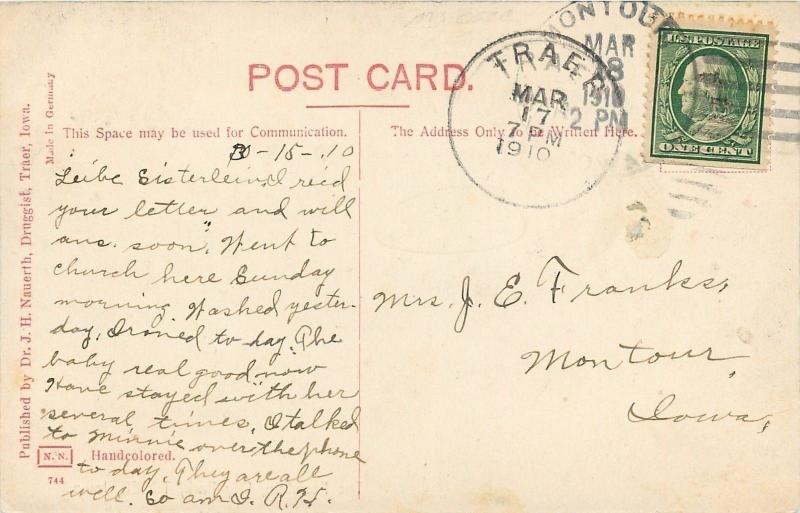 POST CARD.
This Space may be used for Communication.
The Address Only to be Written Here.
Made in Germany
Published by Dr. J. H. Nauerth, Druggist, Traer, Iowa.
-15-.10
Leibe Sisterlein, I rec'd
your letter and will
ans. soon. Went to
church here Sunday
morning. Washed yester-
day, Ironed to day. The
baby real good now
Have stayed with her
several times. I talked
to Minnie over the phone
to day. They are all
well. So am I. R.H.
N.N. Handcolored.
744
Mrs. J. E. Franks,
Montour,
Iowa,
TRAER
MAR
17
7 PM
1910
MONTOUR
MAR
18
1910
2 PM
U.S. POSTAGE
ONE CENT